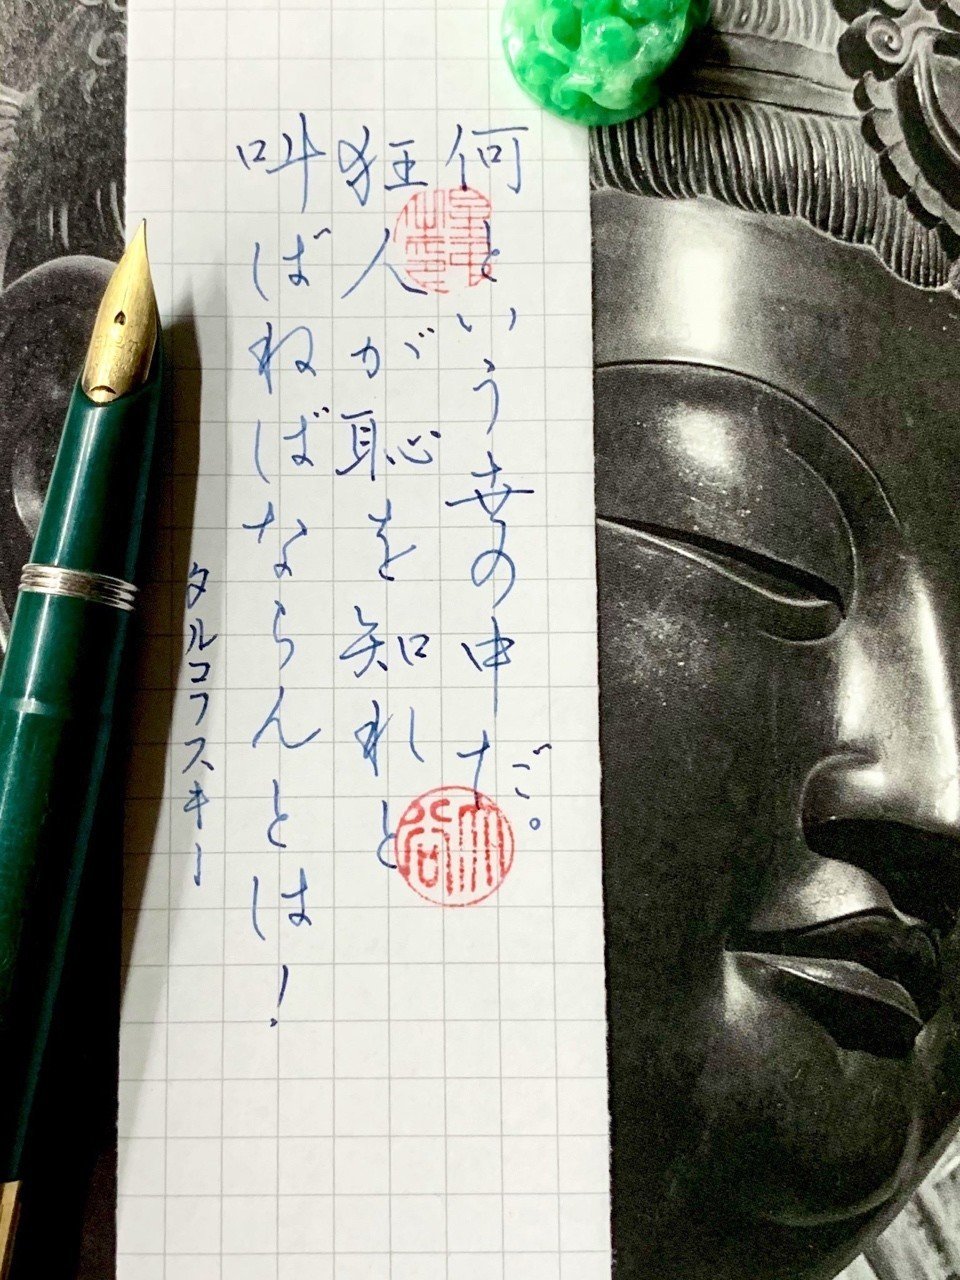 何という世の中だ。
狂人が恥を知れと
叫ばねばならんとは!
タルコフスキー